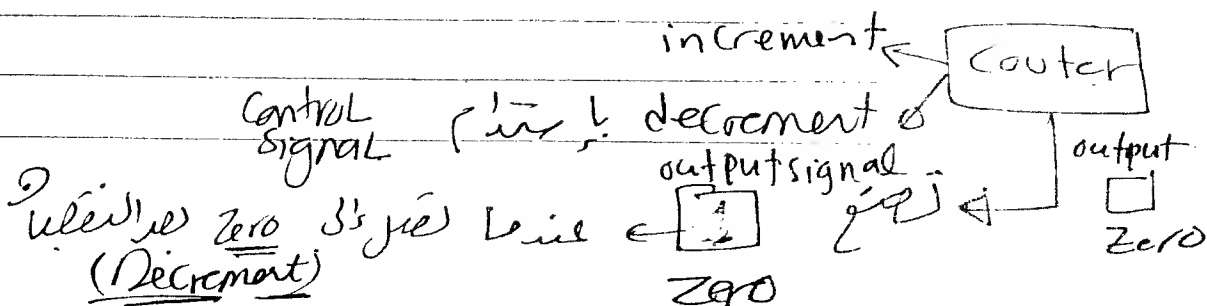 increment
Couter
Control Signal باستخدام decrement
output signal
output
Zero
عندما تصل الى Zero
(Decrement)
Zero